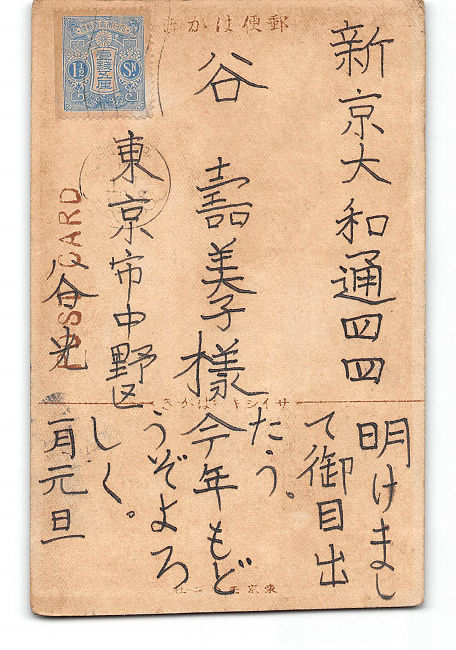 郵便はがき
1½ Sn.
POST CARD
新京大和通四四
谷 嘉美子様
東京市中野区
谷光
明けまし
て御目出
たう。
今年もど
うぞよろ
しく。
一月元旦